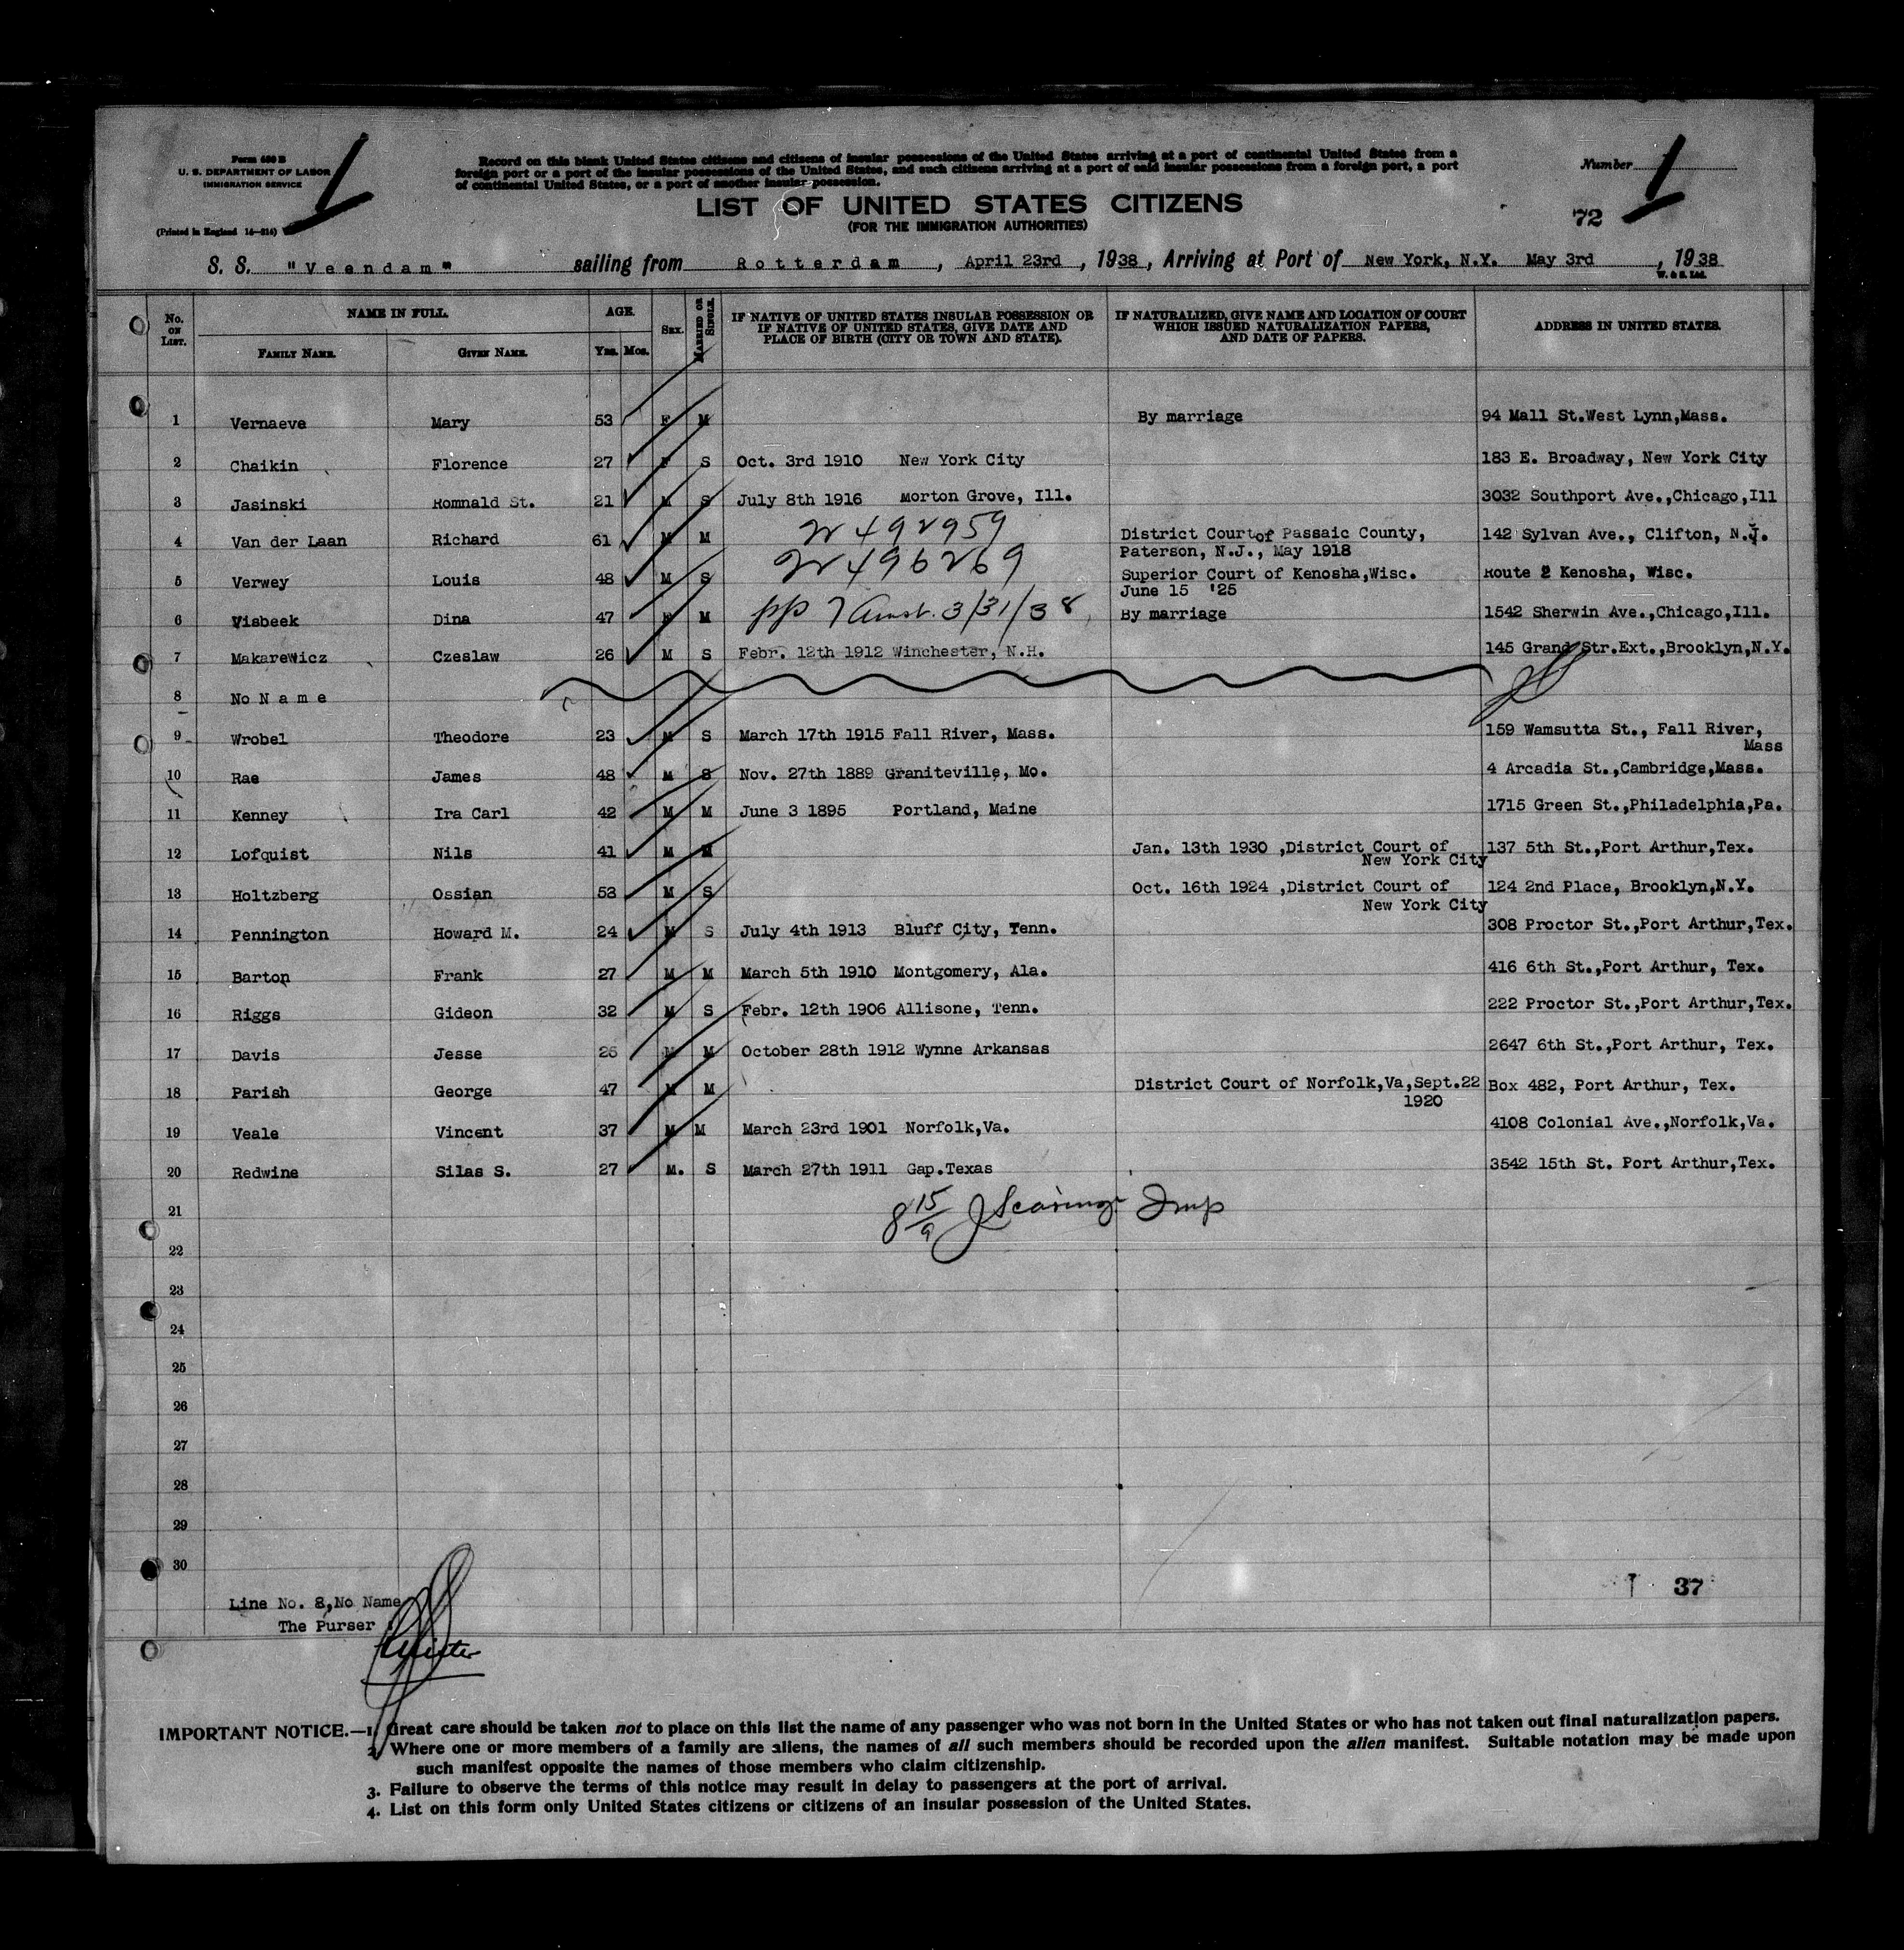 Form 630 B
U. S. DEPARTMENT OF LABOR
IMMIGRATION SERVICE
(Printed in England 14—214)
1
Record on this blank United States citizens and citizens of insular possessions of the United States arriving at a port of continental United States from a
foreign port or a port of the insular possessions of the United States, and such citizens arriving at a port of said insular possessions from a foreign port, a port
of continental United States, or a port of another insular possession.
Number 1
LIST OF UNITED STATES CITIZENS
(FOR THE IMMIGRATION AUTHORITIES)
72
S. S. "Veendam" sailing from Rotterdam, April 23rd, 1938, Arriving at Port of New York, N.Y. May 3rd, 1938
W. & S. Ltd.
No. ON LIST. NAME IN FULL. FAMILY NAME. GIVEN NAME. AGE. Yrs. Mos. SEX. MARRIED OR SINGLE. IF NATIVE OF UNITED STATES INSULAR POSSESSION OR IF NATIVE OF UNITED STATES, GIVE DATE AND PLACE OF BIRTH (CITY OR TOWN AND STATE). IF NATURALIZED, GIVE NAME AND LOCATION OF COURT WHICH ISSUED NATURALIZATION PAPERS, AND DATE OF PAPERS. ADDRESS IN UNITED STATES.
1 Vernaeve Mary 53 F M By marriage 94 Mall St.West Lynn,Mass.
2 Chaikin Florence 27 F S Oct. 3rd 1910 New York City 183 E. Broadway, New York City
3 Jasinski Romnald St. 21 M S July 8th 1916 Morton Grove, Ill. 3032 Southport Ave.,Chicago,Ill
4 Van der Laan Richard 61 M M 492959 District Court of Passaic County, 142 Sylvan Ave., Clifton, N.J.
Paterson, N.J., May 1918
5 Verwey Louis 48 M S 496269 Superior Court of Kenosha,Wisc. Route 2 Kenosha, Wisc.
June 15 '25
6 Visbeek Dina 47 F M pp 3/31/38 By marriage 1542 Sherwin Ave.,Chicago,Ill.
7 Makarewicz Czeslaw 26 M S Febr. 12th 1912 Winchester, N.H. 145 Grand Str.Ext.,Brooklyn,N.Y.
8 No Name
9 Wrobel Theodore 23 M S March 17th 1915 Fall River, Mass. 159 Wamsutta St., Fall River,
Mass
10 Rae James 48 M S Nov. 27th 1889 Graniteville, Mo. 4 Arcadia St.,Cambridge,Mass.
11 Kenney Ira Carl 42 M M June 3 1895 Portland, Maine 1715 Green St.,Philadelphia,Pa.
12 Lofquist Nils 41 M M Jan. 13th 1930 ,District Court of 137 5th St.,Port Arthur,Tex.
New York City
13 Holtzberg Ossian 53 M S Oct. 16th 1924 ,District Court of 124 2nd Place, Brooklyn,N.Y.
New York City
14 Pennington Howard M. 24 M S July 4th 1913 Bluff City, Tenn. 308 Proctor St.,Port Arthur,Tex.
15 Barton Frank 27 M M March 5th 1910 Montgomery, Ala. 416 6th St.,Port Arthur, Tex.
16 Riggs Gideon 32 M S Febr. 12th 1906 Allisone, Tenn. 222 Proctor St.,Port Arthur,Tex.
17 Davis Jesse 25 M M October 28th 1912 Wynne Arkansas 2647 6th St.,Port Arthur, Tex.
18 Parish George 47 M M District Court of Norfolk,Va,Sept.22 Box 482, Port Arthur, Tex.
1920
19 Veale Vincent 37 M M March 23rd 1901 Norfolk,Va. 4108 Colonial Ave.,Norfolk,Va.
20 Redwine Silas S. 27 M. S March 27th 1911 Gap.Texas 3542 15th St. Port Arthur,Tex.
21 8 15/9 Insp
22
23
24
25
26
27
28
29
30
37
Line No. 8,No Name
The Purser :
IMPORTANT NOTICE.—1. Great care should be taken not to place on this list the name of any passenger who was not born in the United States or who has not taken out final naturalization papers.
2. Where one or more members of a family are aliens, the names of all such members should be recorded upon the alien manifest. Suitable notation may be made upon
such manifest opposite the names of those members who claim citizenship.
3. Failure to observe the terms of this notice may result in delay to passengers at the port of arrival.
4. List on this form only United States citizens or citizens of an insular possession of the United States.